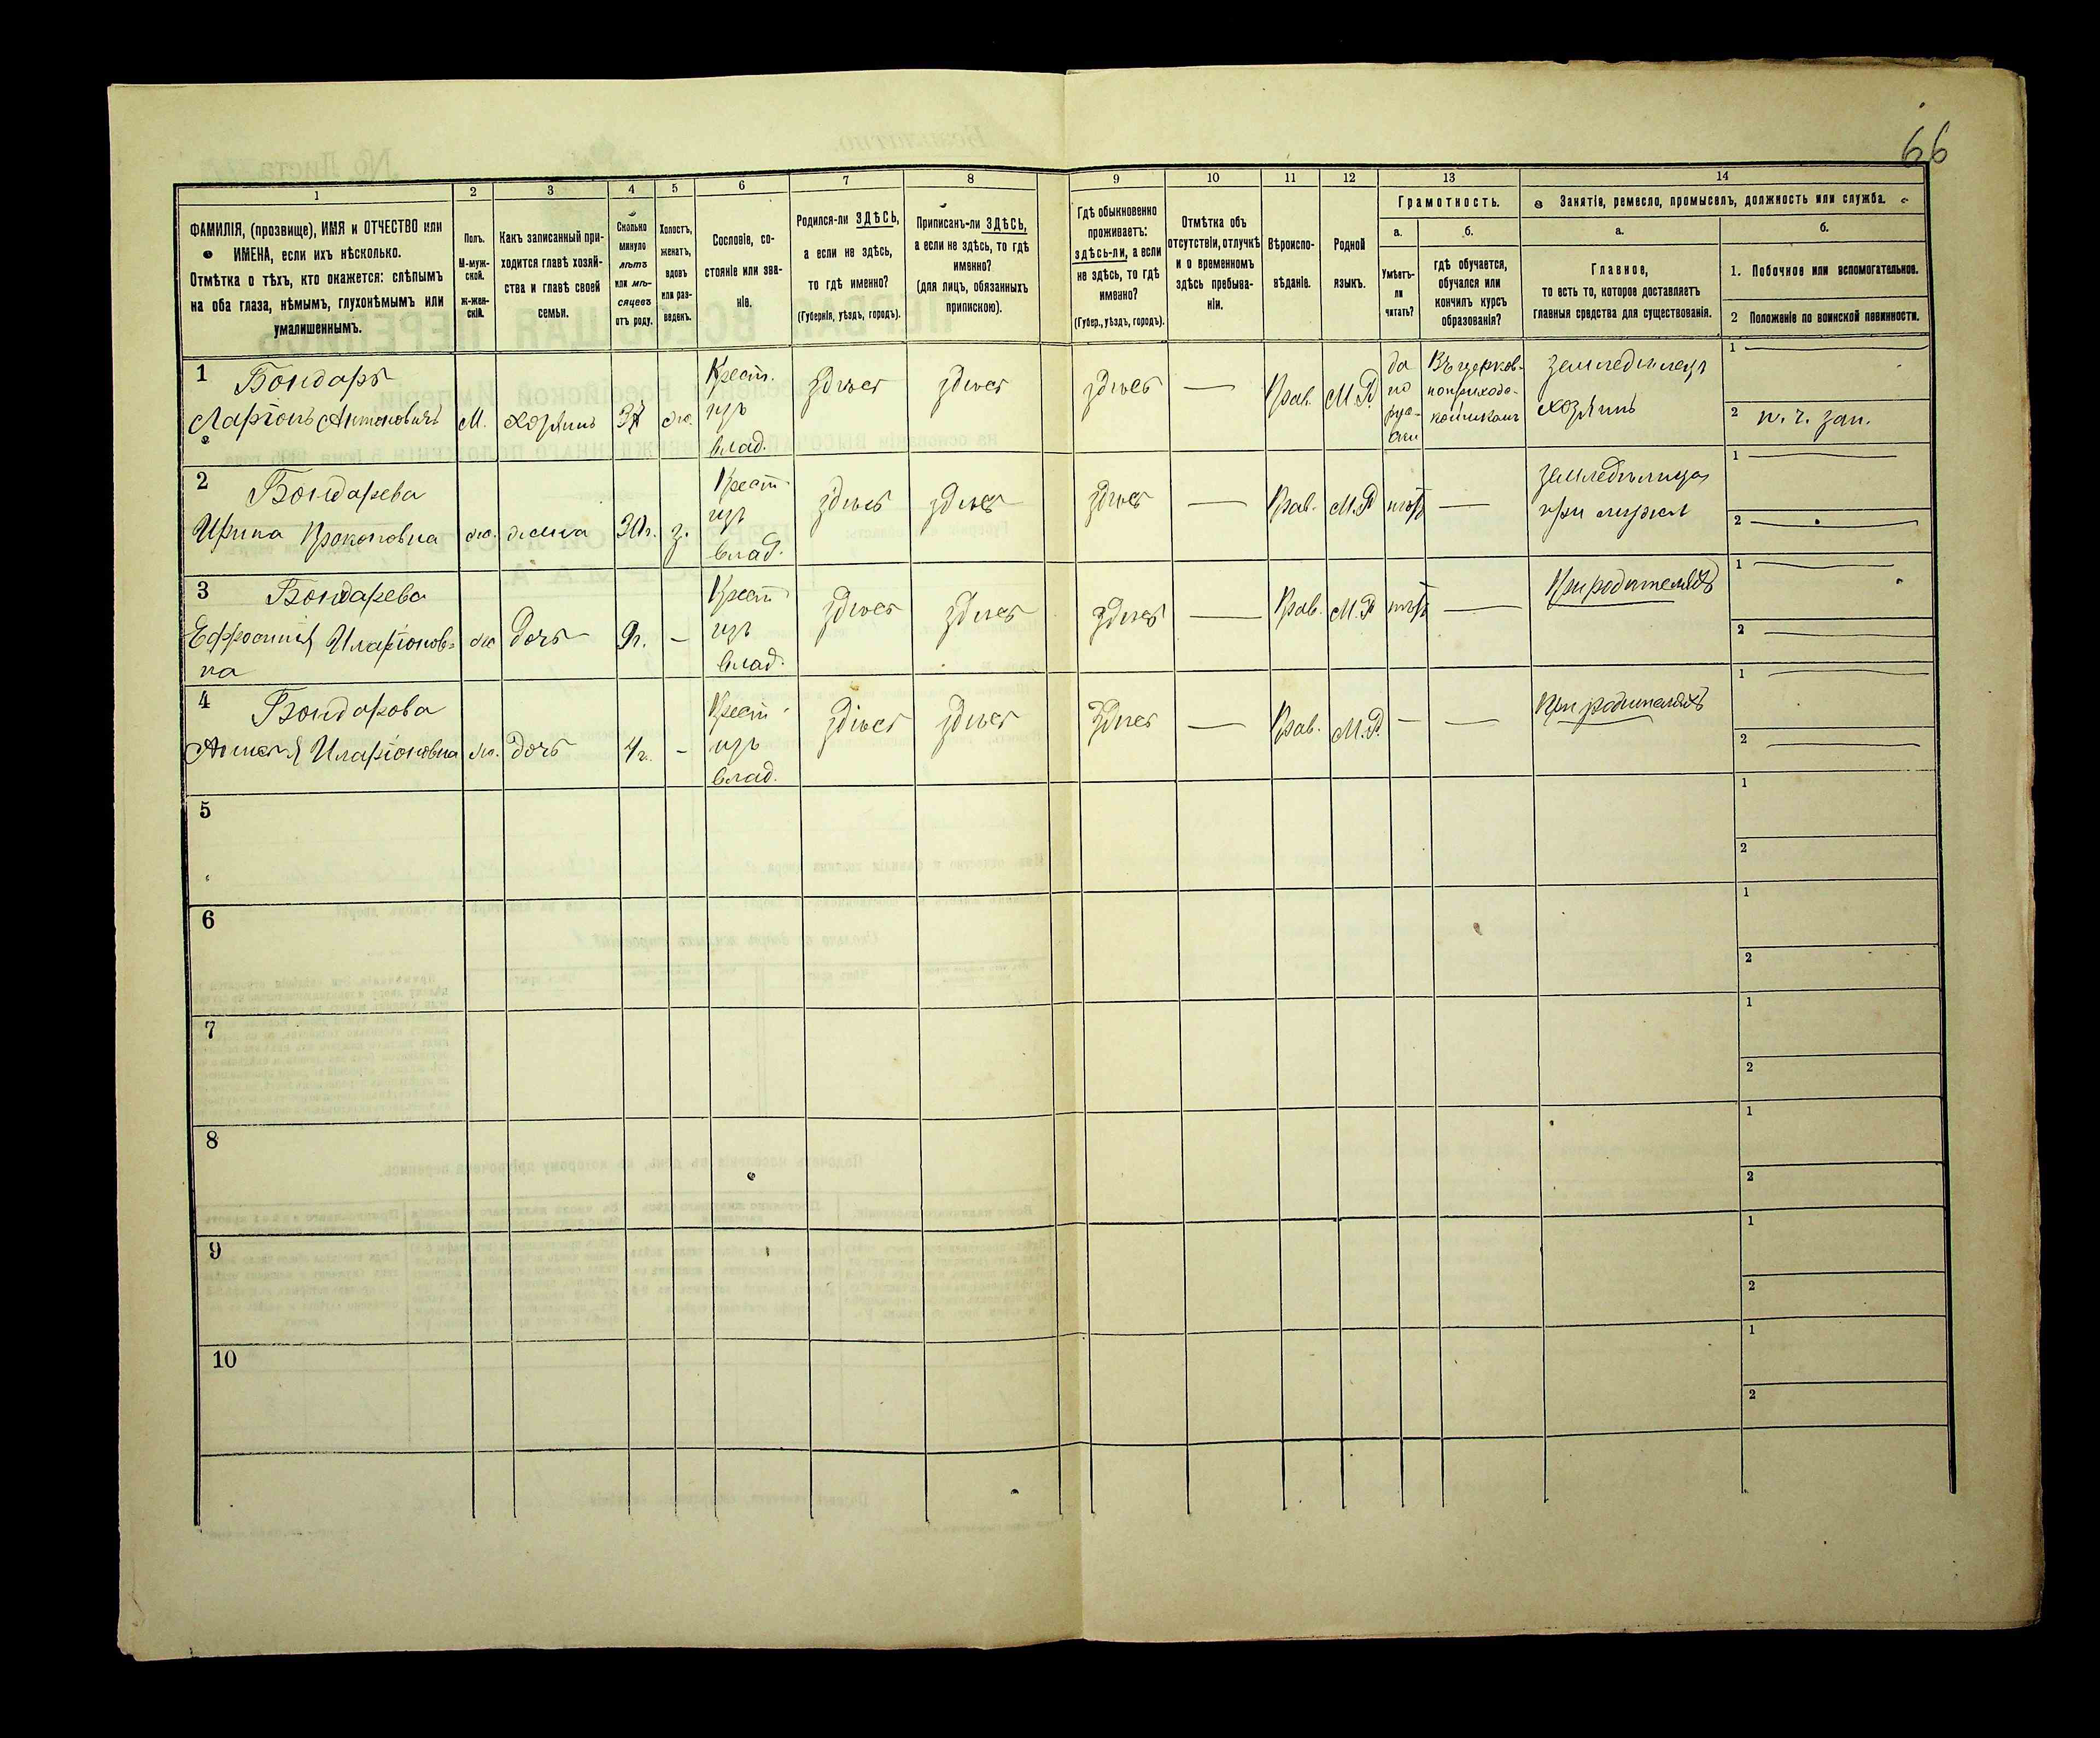 66
1 2 3 4 5 6 7 8 9 10 11 12 13 14
ФАМИЛІЯ, (прозвище), ИМЯ и ОТЧЕСТВО или
ИМЕНА, если ихъ нѣсколько.
Отмѣтка о тѣхъ, кто окажется: слѣпымъ
на оба глаза, нѣмымъ, глухонѣмымъ или
умалишеннымъ.
Полъ.
М-муж-
ской.
ж-жен-
скій.
Какъ записанный при-
ходится главѣ хозяй-
ства и главѣ своей
семьи.
Сколько
минуло
лѣтъ
или мѣ-
сяцевъ
отъ роду.
Холостъ,
женатъ,
вдовъ
или раз-
веденъ.
Сословіе, со-
стояніе или зва-
ніе.
Родился-ли ЗДѢСЬ,
а если не здѣсь,
то гдѣ именно?
(Губернія, уѣздъ, городъ).
Приписанъ-ли ЗДѢСЬ,
а если не здѣсь, то гдѣ
именно?
(для лицъ, обязанныхъ
припискою).
Гдѣ обыкновенно
проживаетъ:
здѣсь-ли, а если
не здѣсь, то гдѣ
именно?
(Губер., уѣздъ, городъ).
Отмѣтка объ
отсутствіи, отлучкѣ
и о временномъ
здѣсь пребыва-
ніи.
Вѣроиспо-
вѣданіе.
Родной
языкъ.
Грамотность.
а.
Умѣетъ-
ли
читать?
б.
гдѣ обучается,
обучался или
кончилъ курсъ
образованія?
Занятія, ремесло, промыселъ, должность или служба.
а.
Главное,
то есть то, которое доставляетъ
главныя средства для существованія.
б.
1. Побочное или вспомогательное.
2 Положеніе по воинской повинности.
1 Бондарь
Ларіонъ Антоновичъ
М.
хозяинъ
Крест.
изъ
влад.
здѣсь
здѣсь
здѣсь
—
Прав.
М.Р.
да
по
рус-
ски
Въ церков-
земледѣлецъ
хозяинъ
1 —
2 н. ч. зап.
2 Бондарева
Ирина Прокоповна
жена
30 г.
з.
Крест
изъ
влад.
здѣсь
здѣсь
здѣсь
—
Прав.
М.Р
нѣтъ
—
земледѣлица
при мужѣ
1 —
2 —
3 Бондарева
Ефросинія Иларіонов-
на
дочь
9 г.
—
Крест
изъ
влад.
здѣсь
здѣсь
здѣсь
—
Прав.
М.Р
нѣтъ
—
При родителяхъ
1 —
2 —
4 Бондарова
Иларіоновна
дочь
4 г.
-
Крест
изъ
влад.
здѣсь
здѣсь
здѣсь
—
Прав.
М.Р.
—
—
При родителяхъ
1 —
2 —
5
1
2
6
1
2
7
1
2
8
1
2
9
1
2
10
1
2